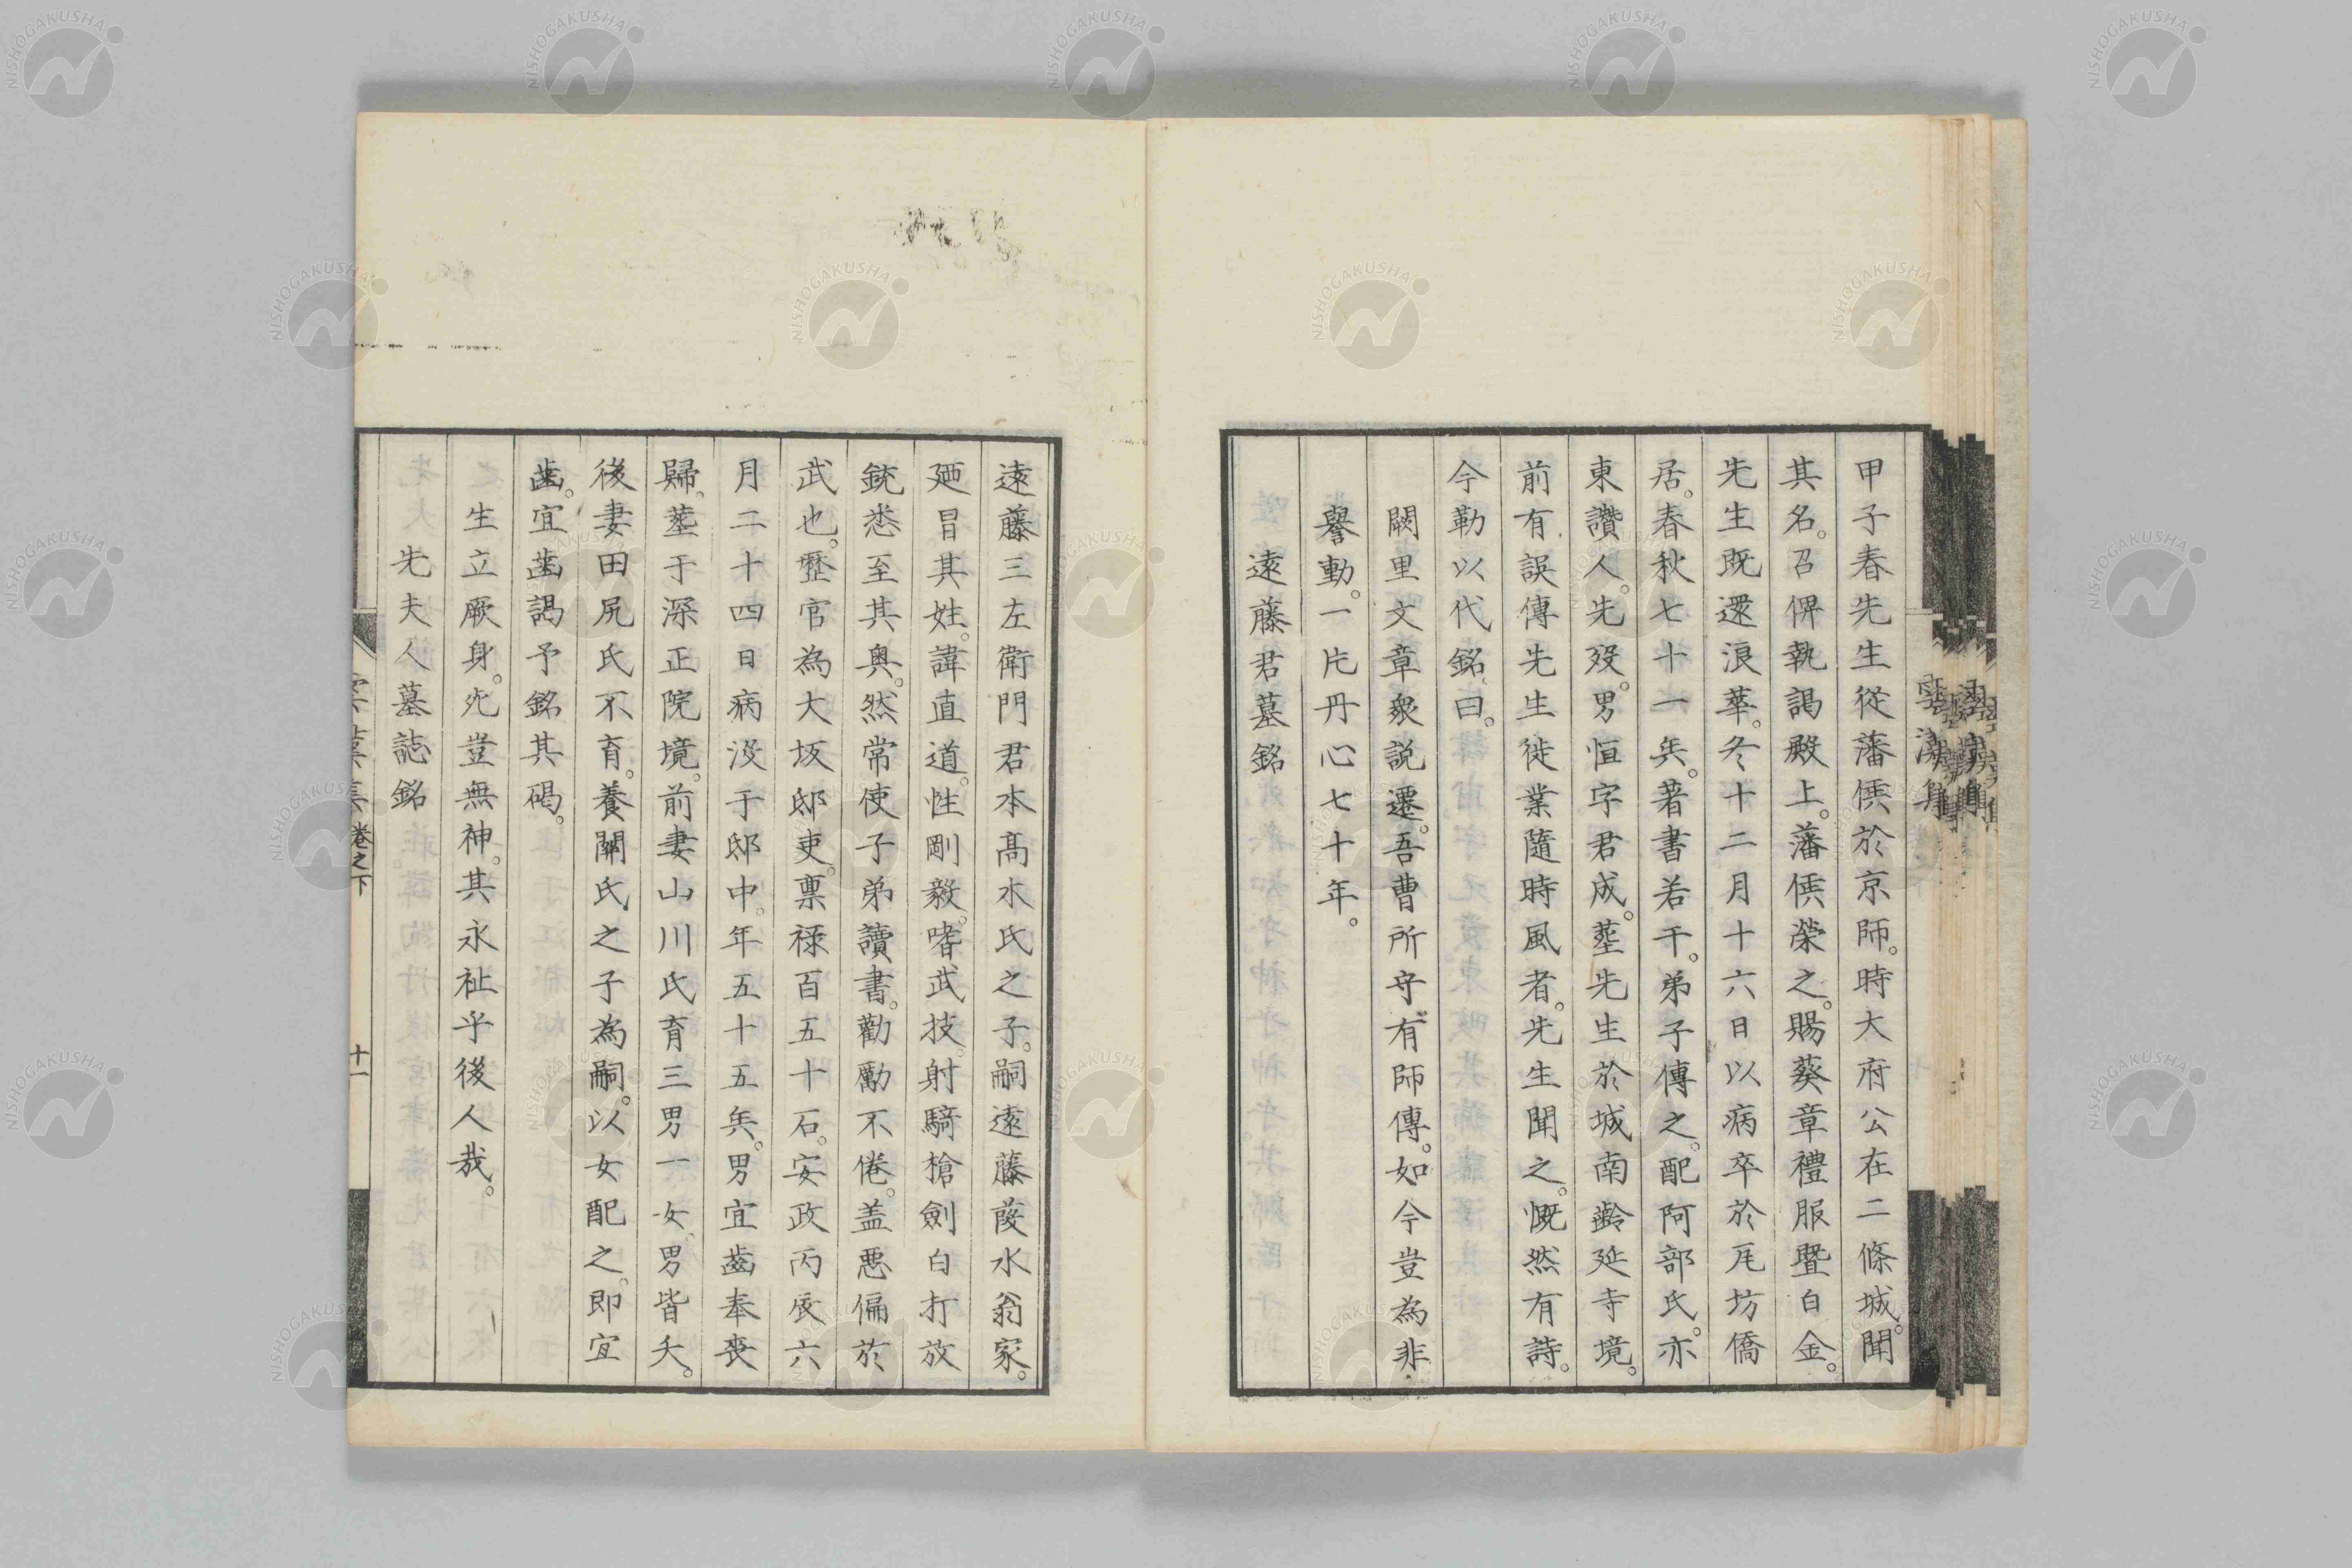 甲子春先生從藩侯於京師。時大府公在二條城。聞
其名。召俾執謁殿上。藩侯榮之。賜葵章禮服曁白金。
先生既還浪華。冬十二月十六日以病卒於尾坊僑
居。春秋七十一矣。著書若干。弟子傳之。配阿部氏。亦
東讚人。先歿。男恒字君成。葬先生於城南齡延寺境。
前有誤傳先生徙業隨時風者。先生聞之。慨然有詩。
今勒以代銘。曰。
闕里文章衆説遷。吾曹所守有師傳。如今豈為非
譽動。一片丹心七十年。
遠藤君墓銘
遠藤三左衛門君本髙木氏之子。嗣遠藤葭水翁家。
廼冒其姓。諱直道。性剛毅。嗜武技。射騎槍劍白打放
銃悉至其奥。然常使子弟讀書。勸勵不倦。盖惡偏於
武也。歷官為大坂邸吏。稟禄百五十石。安政丙辰六
月二十四日病沒于邸中。年五十五矣。男宜齒奉喪
歸。葬于深正院境。前妻山川氏育三男一女。男皆夭。
後妻田尻氏不育。養關氏之子為嗣。以女配之。即宜
齒。宜齒謁予銘其碣。
生立厥身。死豈無神。其永祉乎後人哉。
先夫人墓誌銘
卷之下
十一
NISHOGAKUSHA